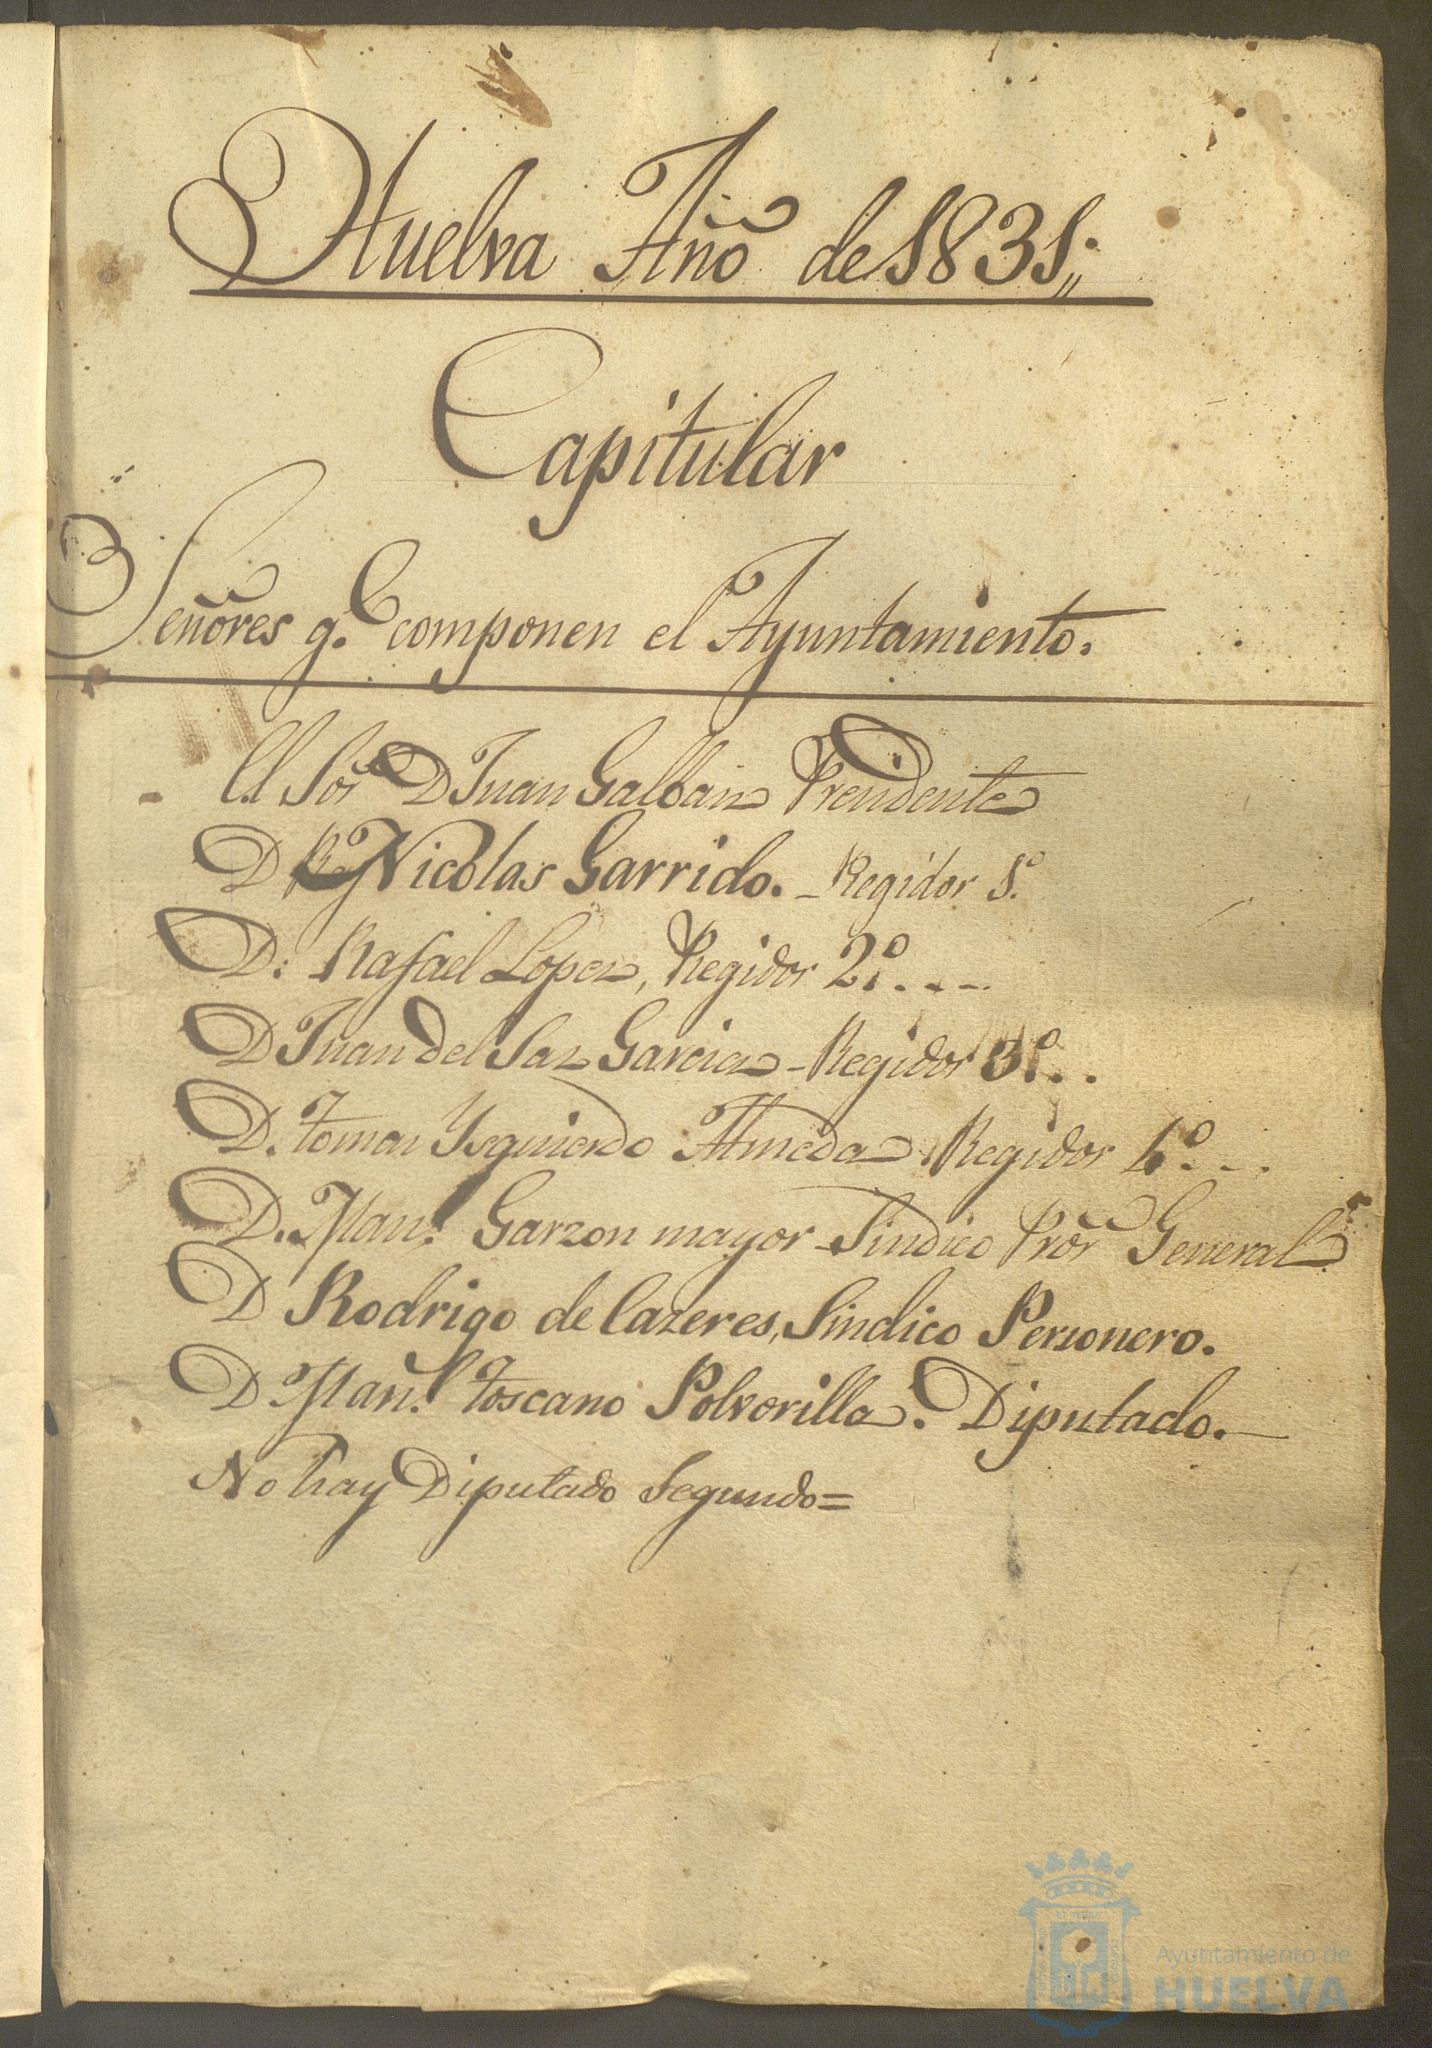 Huelva Año de 1831,,
Capitular
Señores q.e componen el Ayuntamiento.
El Sor D Juan Galban Presidente
D Nicolas Garrido. - Regidor 1.º
D. Rafael Lopez, Regidor 2.º . - -
D Juan del Saz Garcia - Regidor 3.º . .
D. tomas Ysquierdo Almeda Regidor 4.º . - .
D. Man.l Garzon mayor Sindico Pror General
D Rodrigo de Cazeres, Sindico Personero.
D Man.l toscano Polvorilla. Diputado.
No hay Diputado Segundo=
Ayuntamiento de
HUELVA